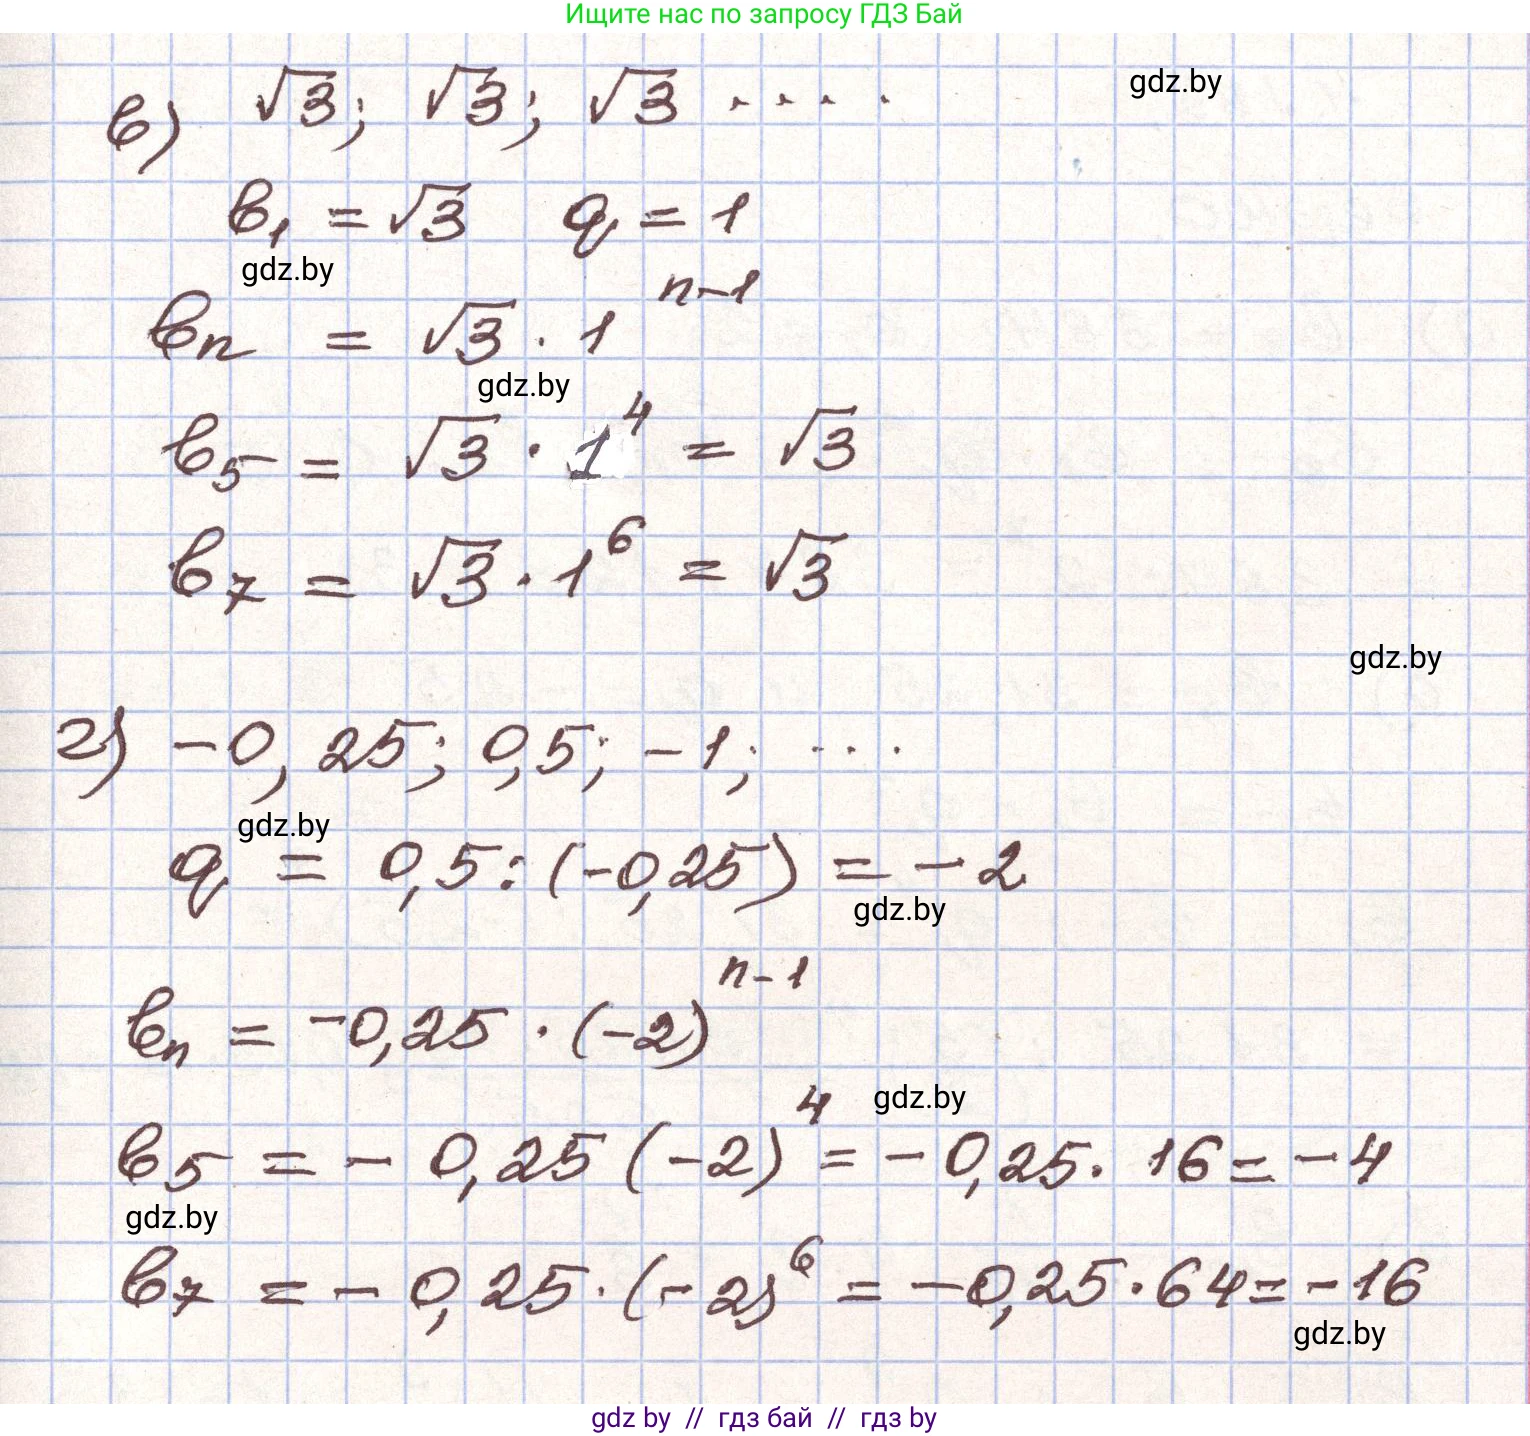 Ищите нас по запросу ГДЗ Бай
в) √3; √3; √3 ....
gdz.by
b₁ = √3 q = 1
gdz.by
bₙ = √3 · 1ⁿ⁻¹
gdz.by
b₅ = √3 · 1⁴ = √3
b₇ = √3 · 1⁶ = √3
gdz.by
г) -0,25; 0,5; -1; ...
gdz.by
q = 0,5 : (-0,25) = -2
gdz.by
bₙ = -0,25 · (-2)ⁿ⁻¹
gdz.by
b₅ = -0,25 (-2)⁴ = -0,25 · 16 = -4
gdz.by
b₇ = -0,25 · (-2)⁶ = -0,25 · 64 = -16
gdz.by
gdz by // гдз бай // гдз by